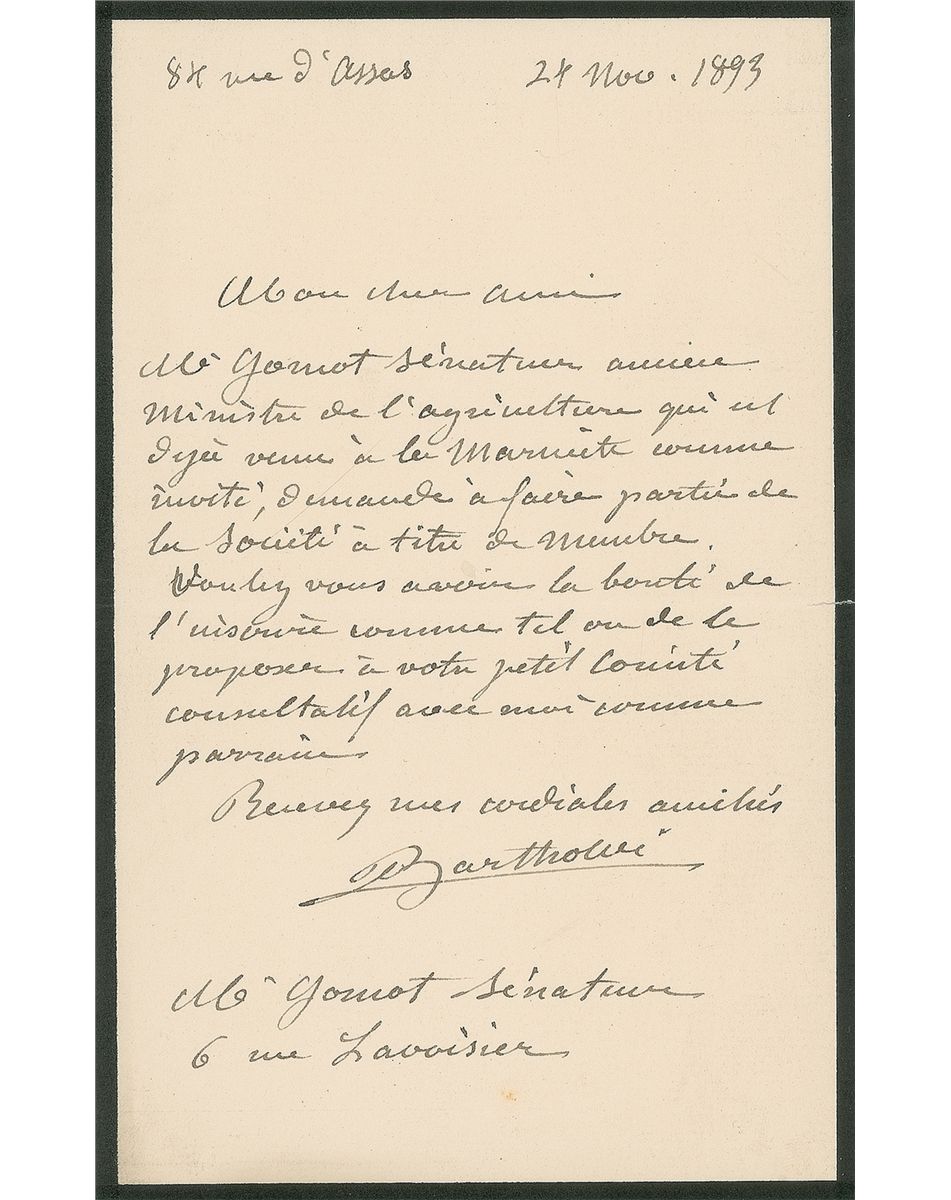 84 rue d'Assas 24 Nov. 1893
Mon cher ami
Mr Gomot Sénateur ancien
Ministre de l'agriculture qui est
déjà venu à la Marmite comme
invité, demande à faire partie de
la Société à titre de membre.
Voulez vous avoir la bonté de
l'inscrire comme tel ou de le
proposer à votre petit Comité
consultatif avec moi comme
parrain
Recevez mes cordiales amitiés
Bartholdi
Mr Gomot Sénateur
6 rue Lavoisier